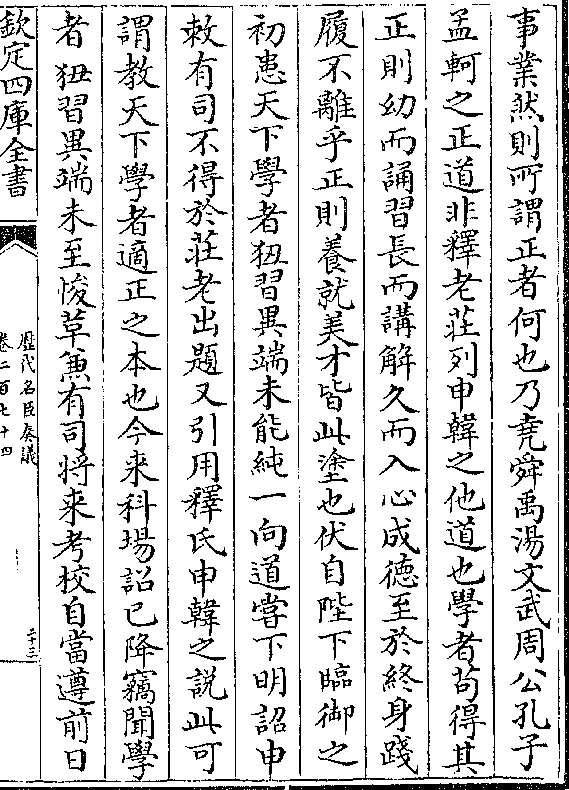 事業然則所謂正者何也乃堯舜禹湯文武周公孔子
孟軻之正道非釋老莊列申韓之他道也學者苟得其
正則幼而誦習長而講解久而入心成德至於終身踐
履不離乎正則養就美才皆此塗也伏自陛下臨御之
初患天下學者狃習異端未能純一向道嘗下明詔申
敕有司不得於莊老出題又引用釋氏申韓之說此可
謂教天下學者適正之本也今来科場詔已降竊聞學
者狃習異端未至悛革兼有司將来考校自當遵前日
欽定四庫全書
歷代名臣奏議
卷二百七十四
二十三